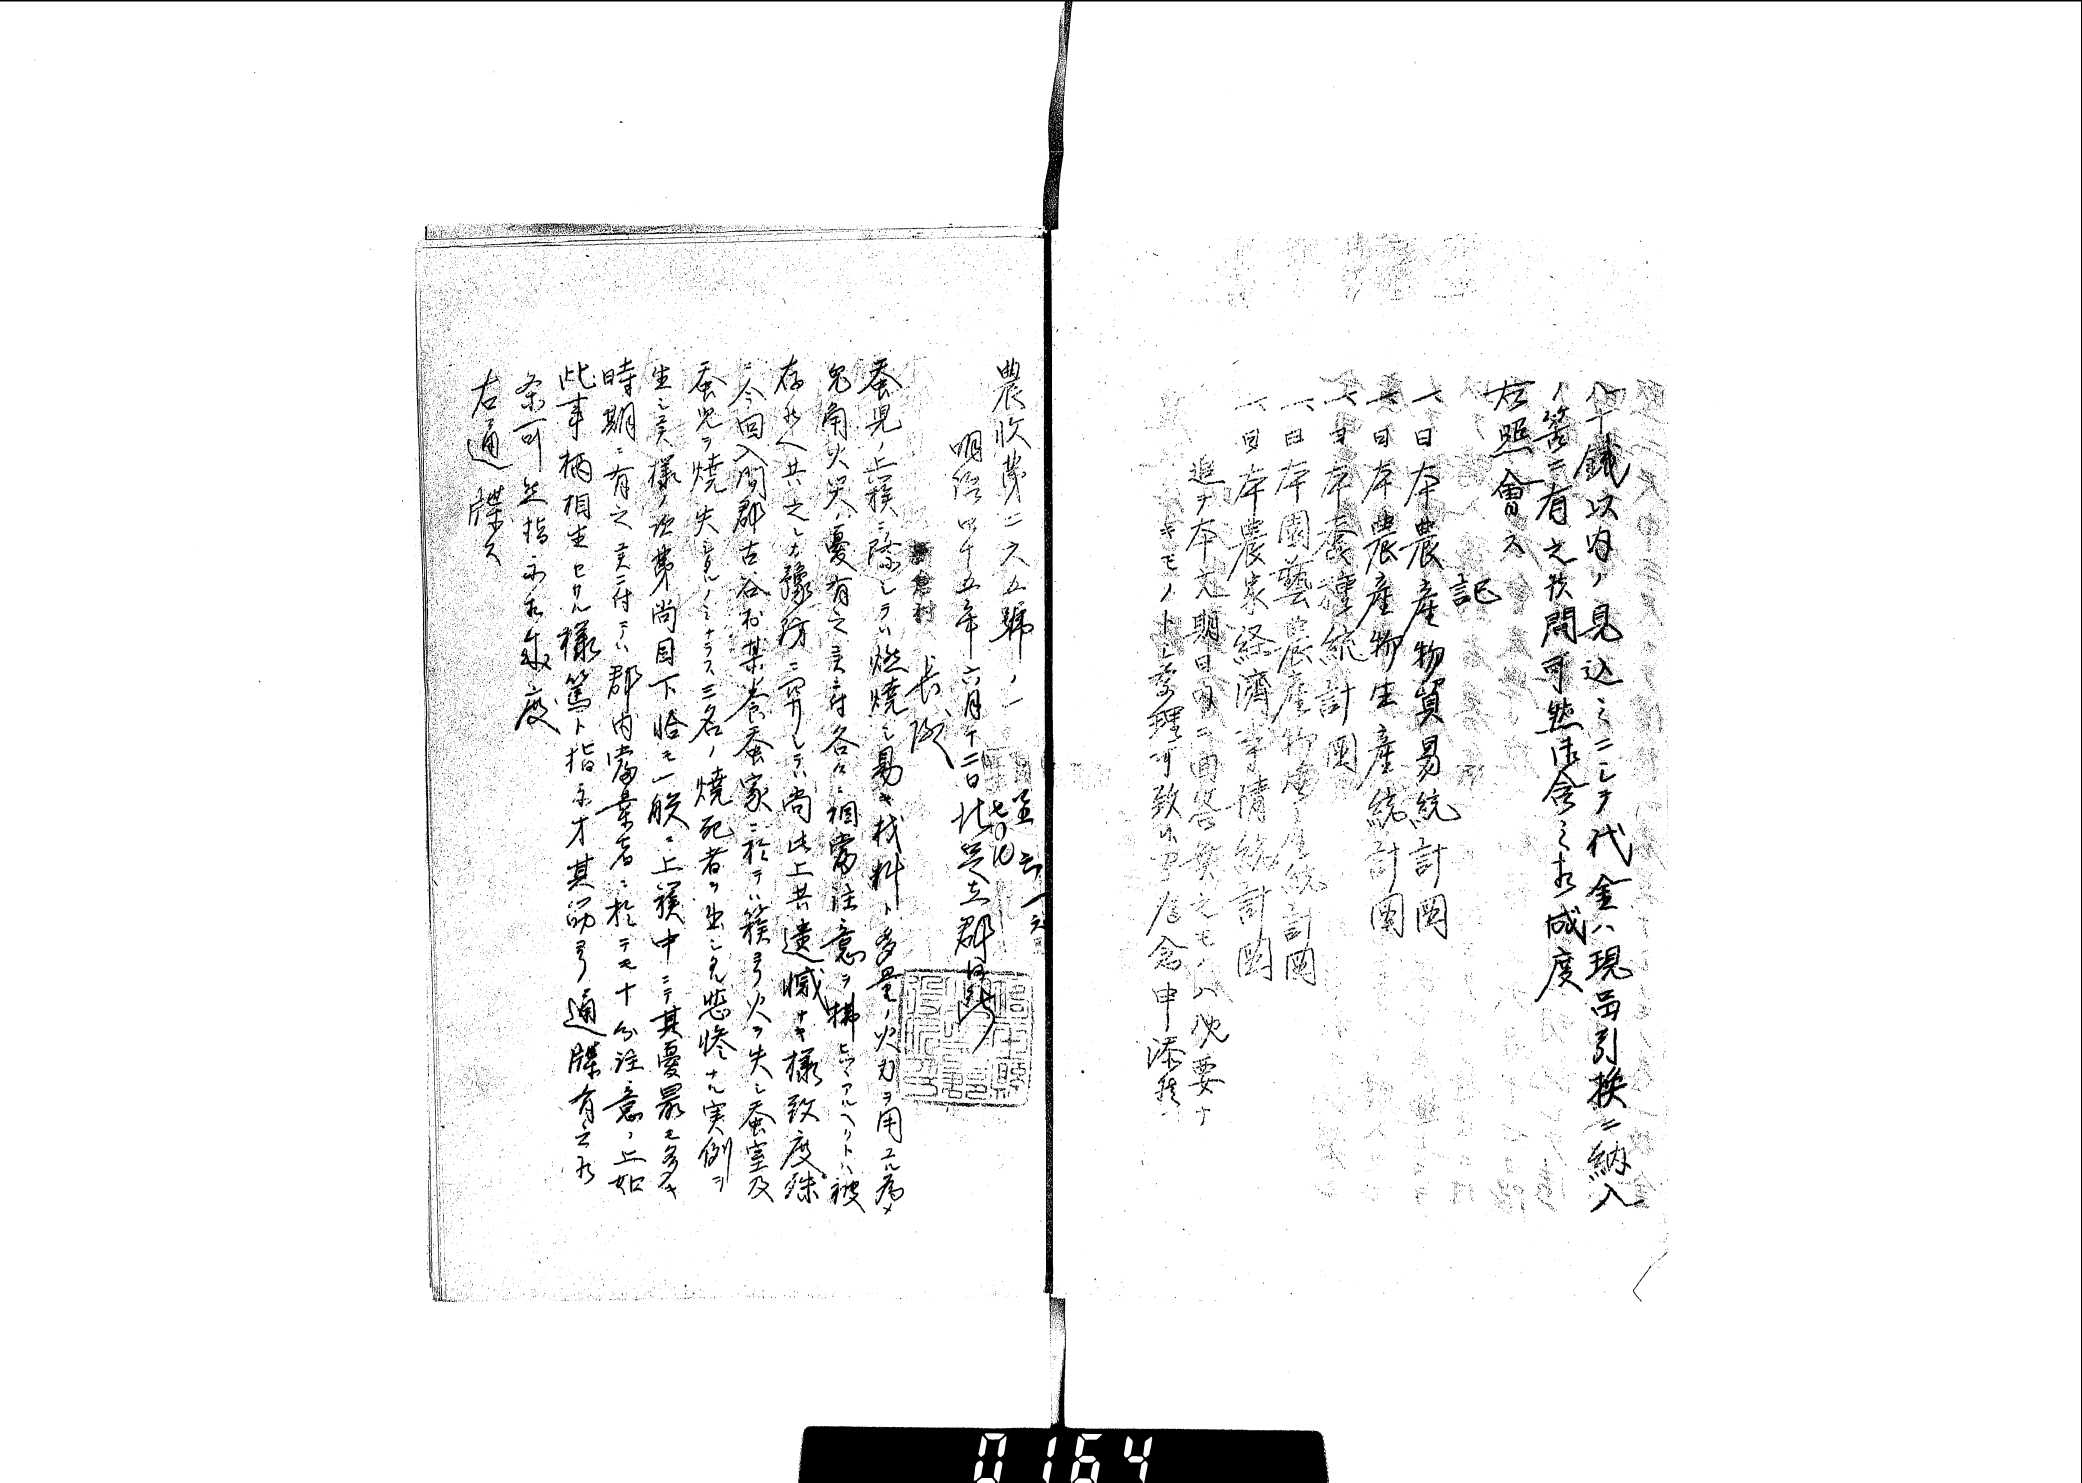 八十銭以内ノ見込ミニシテ代金ハ現品引換ニ納入
ノ筈ニ有之候間可然御含ミ相成度
右照會ス
記
一日本農産物貿易統計図
一日本農産物生産統計図
一日本蚕種統計図
一日本園藝農産物生産統計図
一日本農家経済事情統計図
追テ本文期日内ニ回答無之モノハ他要ナ
キモノトシ処理可致候画為念申添候
農收第二六五號ノ一
明治四十五年六月十二日北足立郡役所
長殿
蚕児ノ上簇ニ際シテハ燃焼シ易キ材料ト多量ノ火力ヲ用ユル為メ
兎角火災ノ憂有之候ニ付各自ニ相當注意ヲ拂ヒツヽアルヘリトハ被
存候ヘ共之レカ豫防ニ関シテハ尚此上共遺憾ナキ様致度殊
ニ今回入間郡古谷村某養蚕家ニ於テハ簇ヨリ火ヲ失シ蚕室及
蚕児ヲ焼失シタルノミナラス三名ノ焼死者ヲ出シタル悲惨ナル実例ヲ
生シ候様ノ次第尚目下恰モ一般ニ上簇中ニテ其憂最モ多キ
時期ニ有之候ニ付テハ郡内當業者ニ於テモ十分注意ノ上如
此事柄相生セサル様篤ト指示方其筋ヨリ通牒有之候
条可然指示相成度
右通牒ス
0164